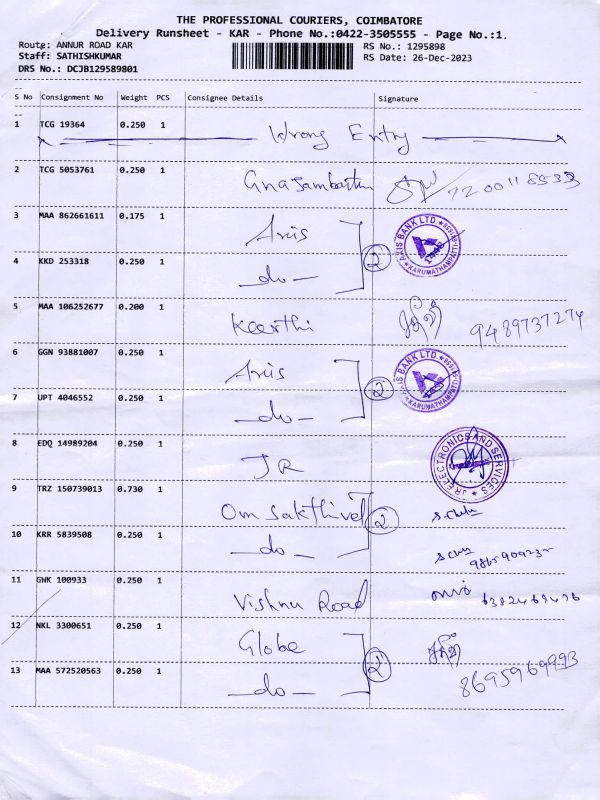 THE PROFESSIONAL COURIERS, COIMBATORE
Delivery Runsheet - KAR - Phone No.:0422-3505555 - Page No.:1.
Route: ANNUR ROAD KAR RS No.: 1295898
Staff: SATHISHKUMAR RS Date: 26-Dec-2023
DRS No.: DCJB129589801
S No Consignment No Weight PCS Consignee Details Signature
1 TCG 19364 0.250 1 Wrong Entry
2 TCG 5053761 0.250 1
3 MAA 862661611 0.175 1 Axis AXIS BANK LTD. KARUMATHAMPATTI
4 KKD 253318 0.250 1 -do- 2
5 MAA 106252677 0.200 1 Keerthi 9489737274
6 GGN 93881007 0.250 1 Axis AXIS BANK LTD. KARUMATHAMPATTI
7 UPT 4046552 0.250 1 -do- 2
8 EDQ 14989204 0.250 1 JR JR ELECTRONICS AND SERVICES
9 TRZ 150739013 0.730 1 Om Sakthivel 2
10 KRR 5839508 0.250 1 -do-
11 GWK 100933 0.250 1 Vishnu Road
12 NKL 3300651 0.250 1 Globe
13 MAA 572520563 0.250 1 -do- 2 8695969993